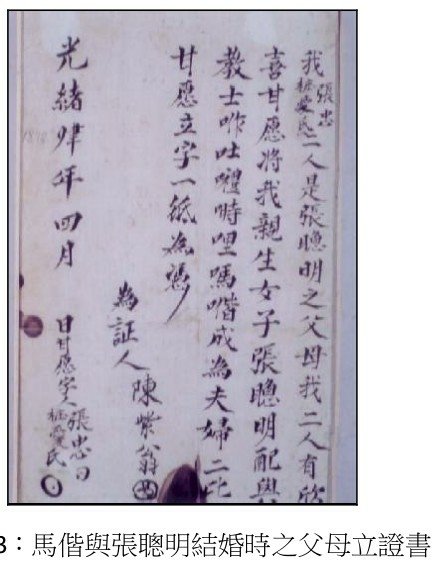 我張忠愛氏二人是張聰明之父母我二人有欣
喜甘愿將我親生女子張聰明配與
教士咋吐時哩嗎喈成為夫婦二比
甘愿立字一紙為憑
為証人陳紫翁
光緒肆年四月 日甘愿字人張忠愛氏
3：馬偕與張聰明結婚時之父母立證書